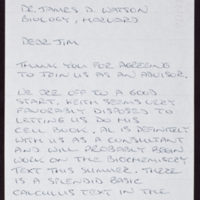 DR. JAMES D. WATSON
BIOLOGY, HARVARD
DEAR JIM
THANK YOU FOR AGREEING
TO JOIN US AS AN ADVISOR.
WE ARE OFF TO A GOOD
START. KEITH SEEMS VERY
FAVORABLY DISPOSED TO
LETTING US DO HIS
CELL BOOK. AL IS DEFINITELY
WITH US AS A CONSULTANT
AND WILL PROBABLY BEGIN
WORK ON THE BIOCHEMISTRY
TEXT THIS SUMMER. THERE
IS A SPLENDID BASIC
CALCULUS TEXT IN THE